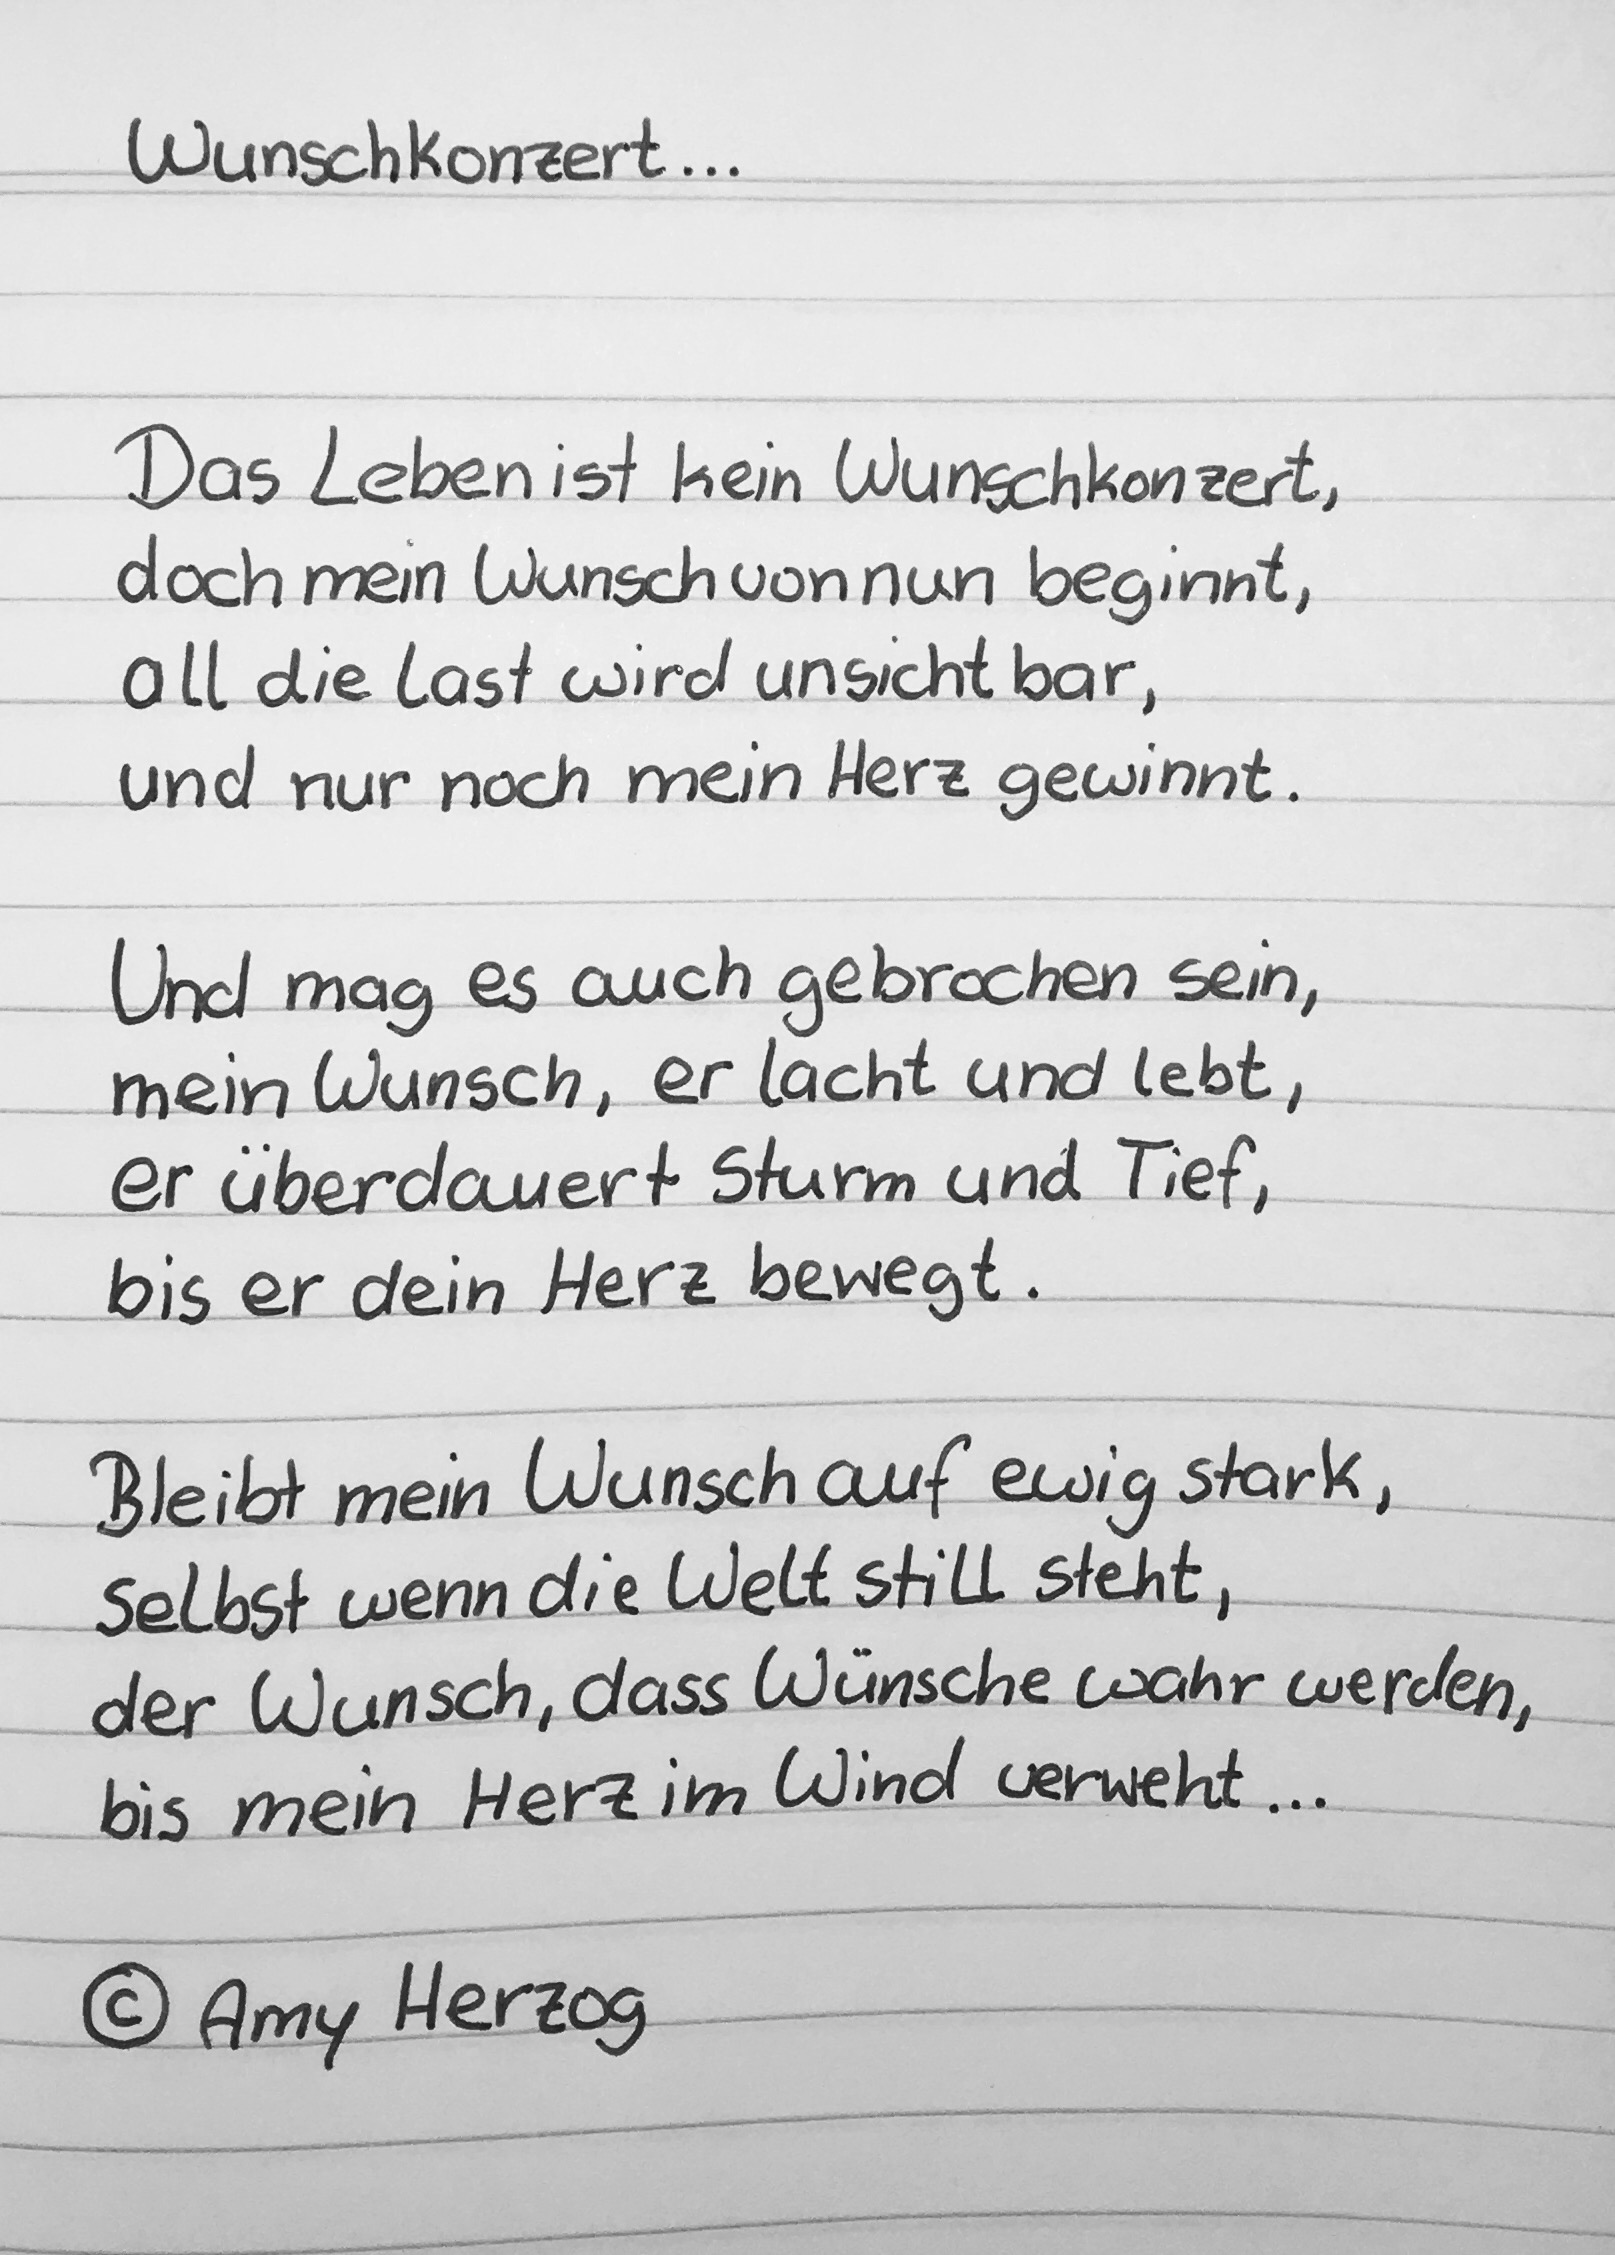 Wunschkonzert...
Das Leben ist kein Wunschkonzert,
doch mein Wunsch von nun beginnt,
all die Last wird unsichtbar,
und nur noch mein Herz gewinnt.
Und mag es auch gebrochen sein,
mein Wunsch, er lacht und lebt,
er überdauert Sturm und Tief,
bis er dein Herz bewegt.
Bleibt mein Wunsch auf ewig stark,
selbst wenn die Welt still steht,
der Wunsch, dass Wünsche wahr werden,
bis mein Herz im Wind verweht...
© Amy Herzog